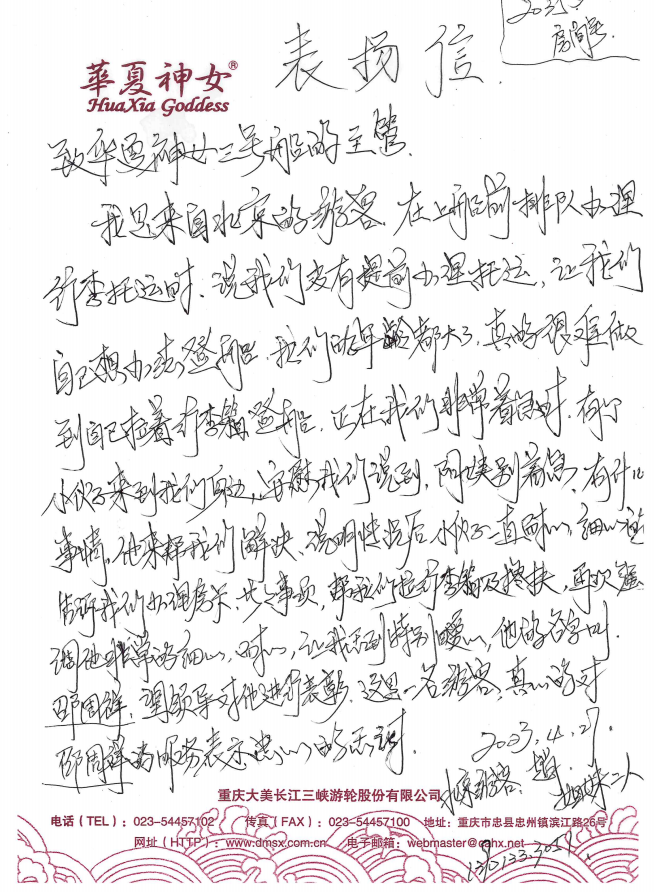 203房间
表扬信.
華夏神女®
HuaXia Goddess
致华夏神女三号船的主管.
我是来自北京的游客.在上船前排队办理
行李托运时.说我们没有提前办理托运,让我们
自己想办法登船.我们的年龄都大了.真的很难做
到自己拉着行李箱登船.正在我们非常着急时.有个
小伙子来到我们身边,安慰我们说到,阿姨别着急,有什么
事情.他来帮我们解决.说明情况后小伙子一直耐心,细心的
告诉我们办理房卡.其它事项,帮我们拉行李箱及搀扶,再次强
调他非常的细心,耐心,让我感到特别暖心,他的名字叫.
邵周祥.望领导对他进行表彰.这是一名游客,真心的对
邵周祥的服务表示衷心的感谢.
2023.4.27.
北京游客.
姐妹二人
重庆大美长江三峡游轮股份有限公司
电话(TEL):023-54457102 传真(FAX):023-54457100 地址:重庆市忠县忠州镇滨江路26号
网址(HTTP):www.dmsx.com.cn 电子邮箱:webmaster@qhx.net